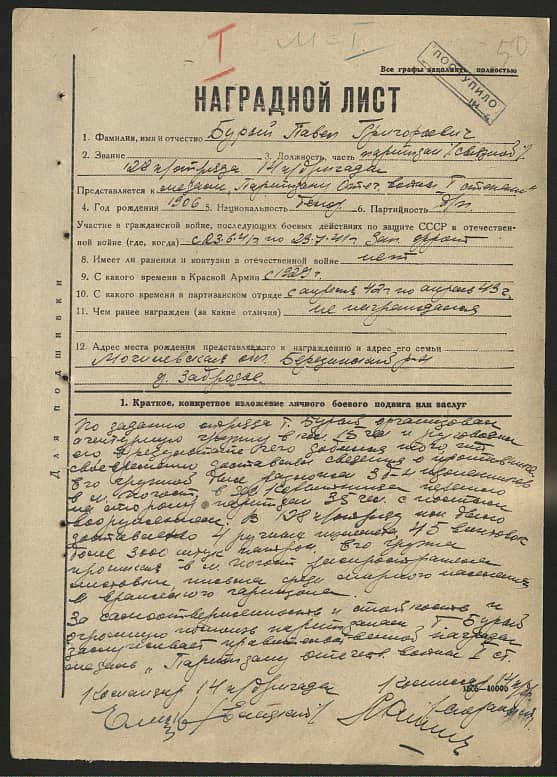 I
М-I
50
Все графы заполнять полностью
ПОСТУПИЛО
НАГРАДНОЙ ЛИСТ
1. Фамилия, имя и отчество Бурый Павел Григорьевич
2. Звание 3. Должность, часть партизан /связной/
128 п/отряда 14 п/бригады
Представляется к медали "Партизану Отеч. войны I степени"
4. Год рождения 1906 5. Национальность белор. 6. Партийность б/п.
Участие в гражданской войне, последующих боевых действиях по защите СССР и отечествен-
ной войне (где, когда) Зап. фронт
8. Имеет ли ранения и контузии в отечественной войне нет
9. С какого времени в Красной Армии с 1929 г.
10. С какого времени в партизанском отряде с апреля 42 г. по апрель 43 г.
11. Чем ранее награжден (за какие отличия) не награждался
12. Адрес места рождения представляемого к награждению и адрес его семьи
Могилевская обл. Березинский р-н
Для подшивки
1. Краткое, конкретное изложение личного боевого подвига или заслуг
По заданию отряда т. Бурый организовал
агентурную группу в чел. и руководил
ей.
своевременно доставлял сведения о противнике
Его группой
в м. Погост
на сторону партизан 35 чел. с полным
вооружением. В 128 п/отряд было
доставлено 4 ручных пулемета 45 винтовок
более 3000 штук патрон. Его группа
в м. Погост распространяла
листовки, письма среди мирного населения
и вражеского гарнизона.
За самоотверженность и стойкость и
огромную помощь партизанам т. Бурый
заслуживает правительственной награды
медаль "Партизану отечеств. войны I ст.
Командир 14 п/бригады
Комиссар 14 п/бр.